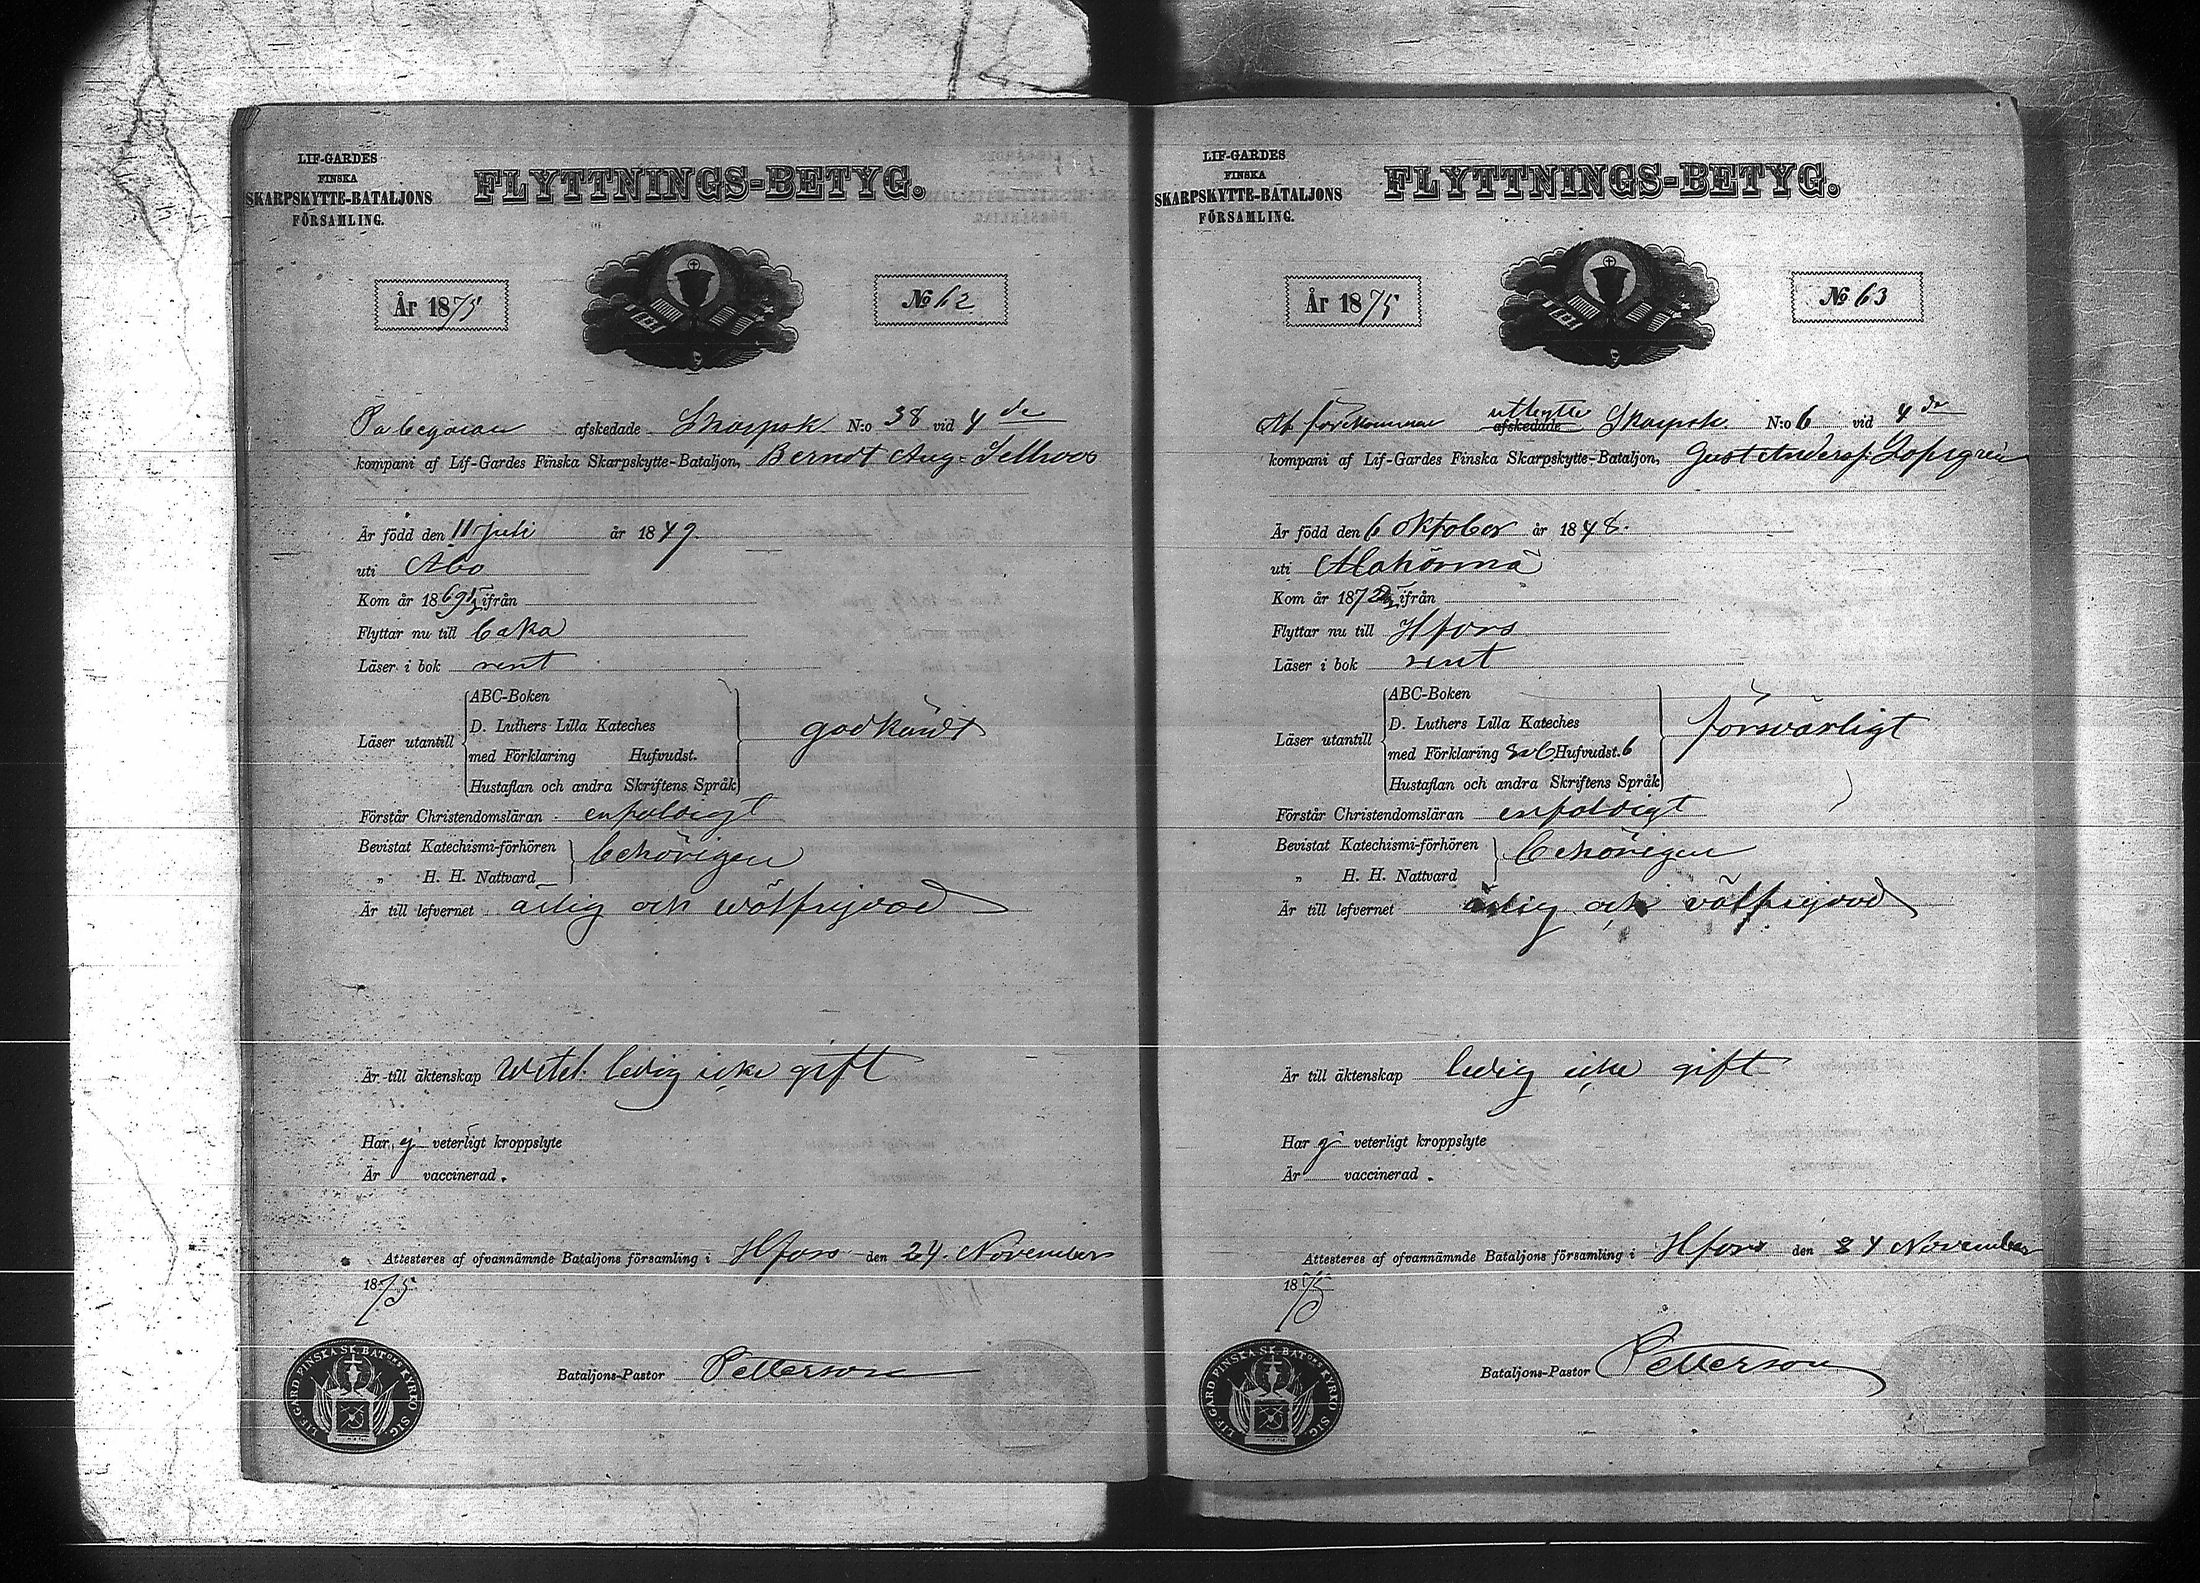 LIF-GARDES
FINSKA
SKARPSKYTTE-BATALJONS
FÖRSAMLING.
FLYTTNINGS-BETYG.
År 1875
№ 62
På begäran afskedade Skarpsk N:o 38 vid 4de
kompani af Lif-Gardes Finska Skarpskytte-Bataljon, Berndt Aug.
Är född den 11 juli år 1849.
uti Åbo
Kom år 1869 ifrån
Flyttar nu till
Läser i bok rent
Läser utantill
ABC-Boken
D. Luthers Lilla Kateches
med Förklaring Hufvudst.
Hustaflan och andra Skriftens Språk
godkändt
Förstår Christendomsläran enfaldigt
Bevistat Katechismi-förhören
„ H. H. Nattvard
behörigen
Är till lefvernet ärlig och wälfrejdad
Är till äktenskap Wetel. ledig icke gift
Har ej veterligt kroppslyte
Är vaccinerad.
Attesteres af ofvannämnde Bataljons församling i Hfors den 24. November
1875
Bataljons-Pastor Petterson
LIF-GARD FINSKA SK. BATONS KYRKO SIG.
LIF-GARDES
FINSKA
SKARPSKYTTE-BATALJONS
FÖRSAMLING.
FLYTTNINGS-BETYG.
År 1875
№ 63
utbytte
afskedade Skarpsk N:o 6 vid 4de
kompani af Lif-Gardes Finska Skarpskytte-Bataljon, Gust Anderss.
Är född den 6 oktober år 1848.
uti Alahärmä
Kom år 1872 ifrån
Flyttar nu till Hfors
Läser i bok rent
Läser utantill
ABC-Boken
D. Luthers Lilla Kateches
med Förklaring Hufvudst. 6
Hustaflan och andra Skriftens Språk
försvarligt
Förstår Christendomsläran enfaldigt
Bevistat Katechismi-förhören
„ H. H. Nattvard
behörigen
Är till lefvernet ärlig och välfrejdad
Är till äktenskap ledig icke gift
Har ej veterligt kroppslyte
Är vaccinerad.
Attesteres af ofvannämnde Bataljons församling i Hfors den 24 November
1875
Bataljons-Pastor Petterson
LIF-GARD FINSKA SK. BATONS KYRKO SIG.